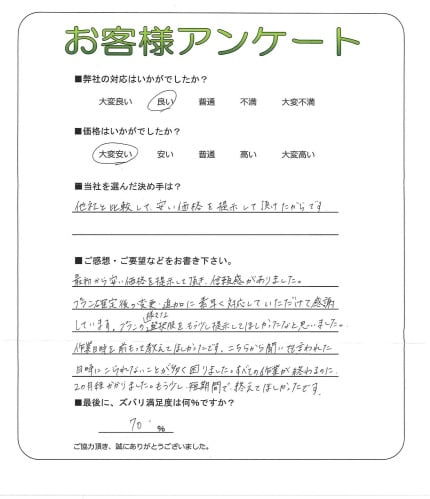 お客様アンケート
■弊社の対応はいかがでしたか？
大変良い 良い 普通 不満 大変不満
■価格はいかがでしたか？
大変安い 安い 普通 高い 大変高い
■当社を選んだ決め手は？
他社と比較して、安い価格を提示して頂けたからです
■ご感想・ご要望などをお書き下さい。
最初から安い価格を提示して頂き、信頼感がありました。
プラン確定後の変更・追加に素早く対応していただけて感謝
しています。プランの選択肢をもう少し提示してほしかったなと思いました。
作業日時を前もって教えてほしかったです。こちらから聞い 言われた
日時にこられないことが多く困りました。すべての作業が終わるのに、
2カ月程かかりました。もう少し短期間で、終えてほしかったです。
■最後に、ズバリ満足度は何％ですか？
70 ％
ご協力頂き、誠にありがとうございました。